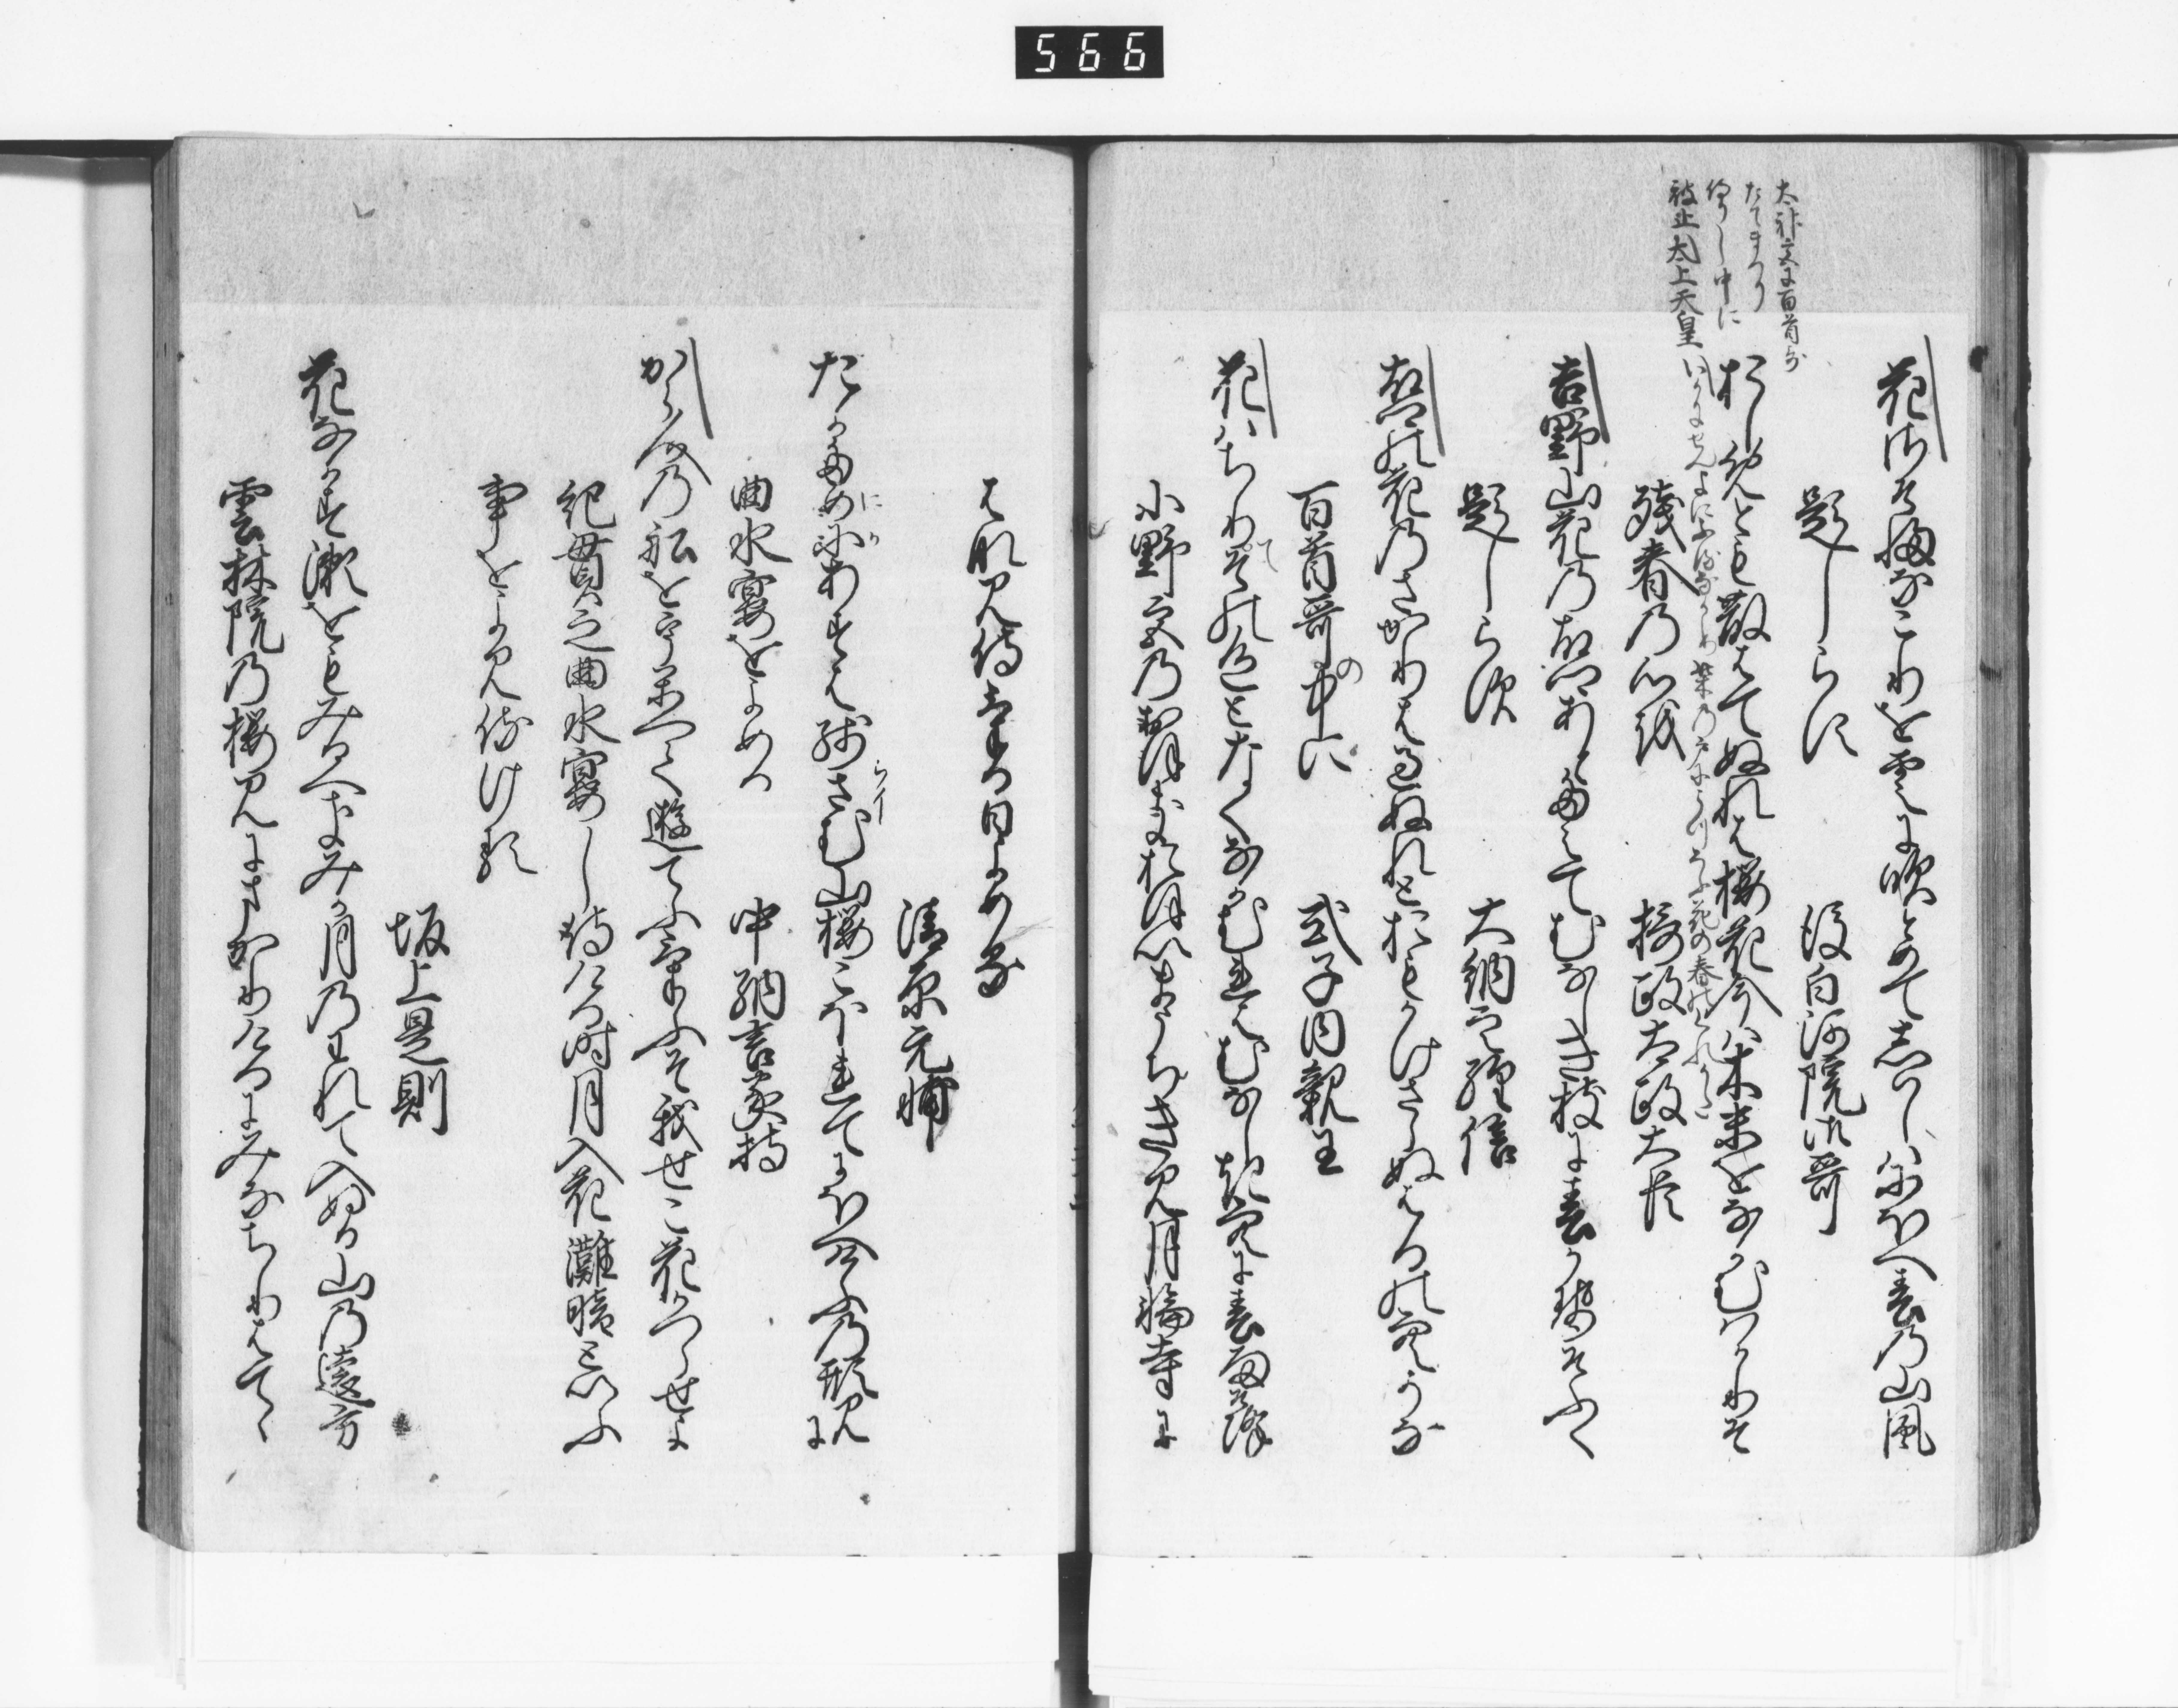 566
花さそふなこりを雲に吹とめてしはしはにほへ春の山風
題しらす 後白河院御哥
おしめとも散はてぬれは桜花今は木末をなかむはかりそ
太神宮に百首哥
たてまつり
侍りし中に
被止太上天皇
いかにせんよにふるなかめ柴の戸にうつろふ花の春のくれかた
残春の心を 摂政太政大臣
吉野山花の故郷あとたえてむなしき枝に春風そふく
題しらす 大納言経信
故郷の花のさかりはすきぬれとおもかけさらぬはるの空かな
百首哥の中に 式子内親王
花はちりてその色となくなかむれはむなしき空に春雨そ降
小野宮のおほきおほいまうちきみ月輪寺に
花見侍ける日よめる
清原元輔
たかためにかあすは残さむ山桜こほれてにほへけふの形見に
らイ
曲水宴をよめる 中納言家持
から人の船をうかへて遊てふけふそ我せこ花かつらせよ
紀貫之曲水宴し侍ける時月入花灘暗といふ
事をよみ侍ける
坂上是則
花なかす瀬をもみるへきみか月のわれて入ぬる山の遠方
雲林院の桜見にまかりけるにみなちりはてゝ